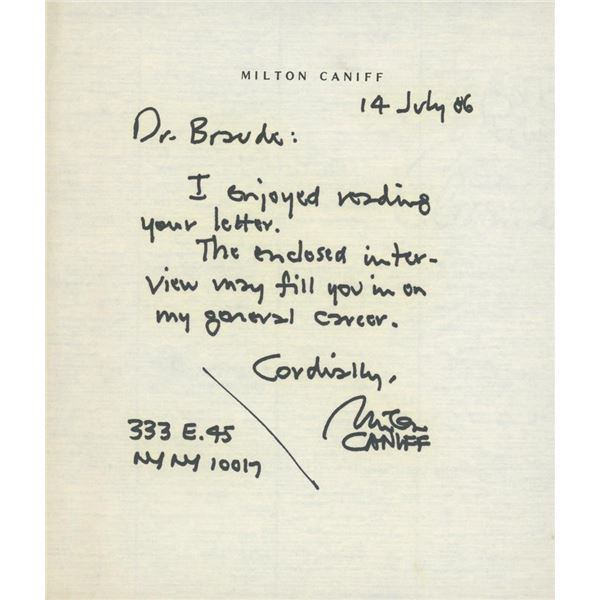 MILTON CANIFF
14 July 86
Dr. Braude:
I enjoyed reading
your letter.
The enclosed inter-
view may fill you in on
my general career.
Cordially,
Milton
CANIFF
333 E. 45
NY NY 10017